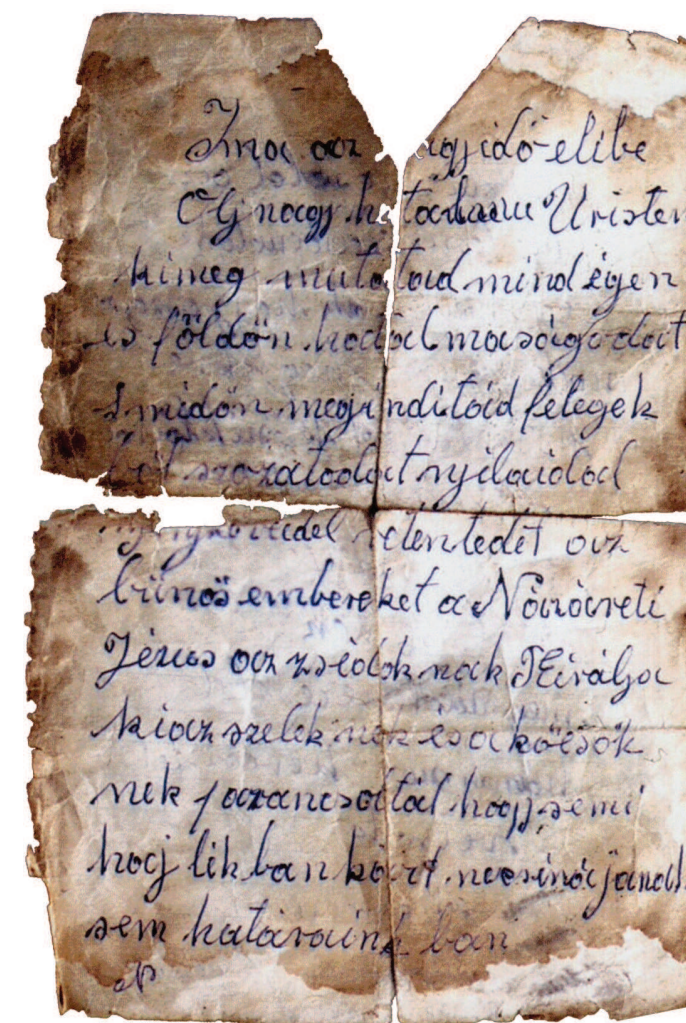 Ima az nagyidő elibe
Oj nagy hatalmu Uristen
ki meg mutatad mind égen
és földön hatalmaságodat
s midőn meginditád felegek
ből szozatodat nyilaidal
jelentedét az
bűnös embereket a Názáreti
Jézus az zsidóknak Királya
ki az szeleknek es a köesők
nek parancsoltál hogy semi
haj lik ban kárt necsinájanak
sem határaink ban